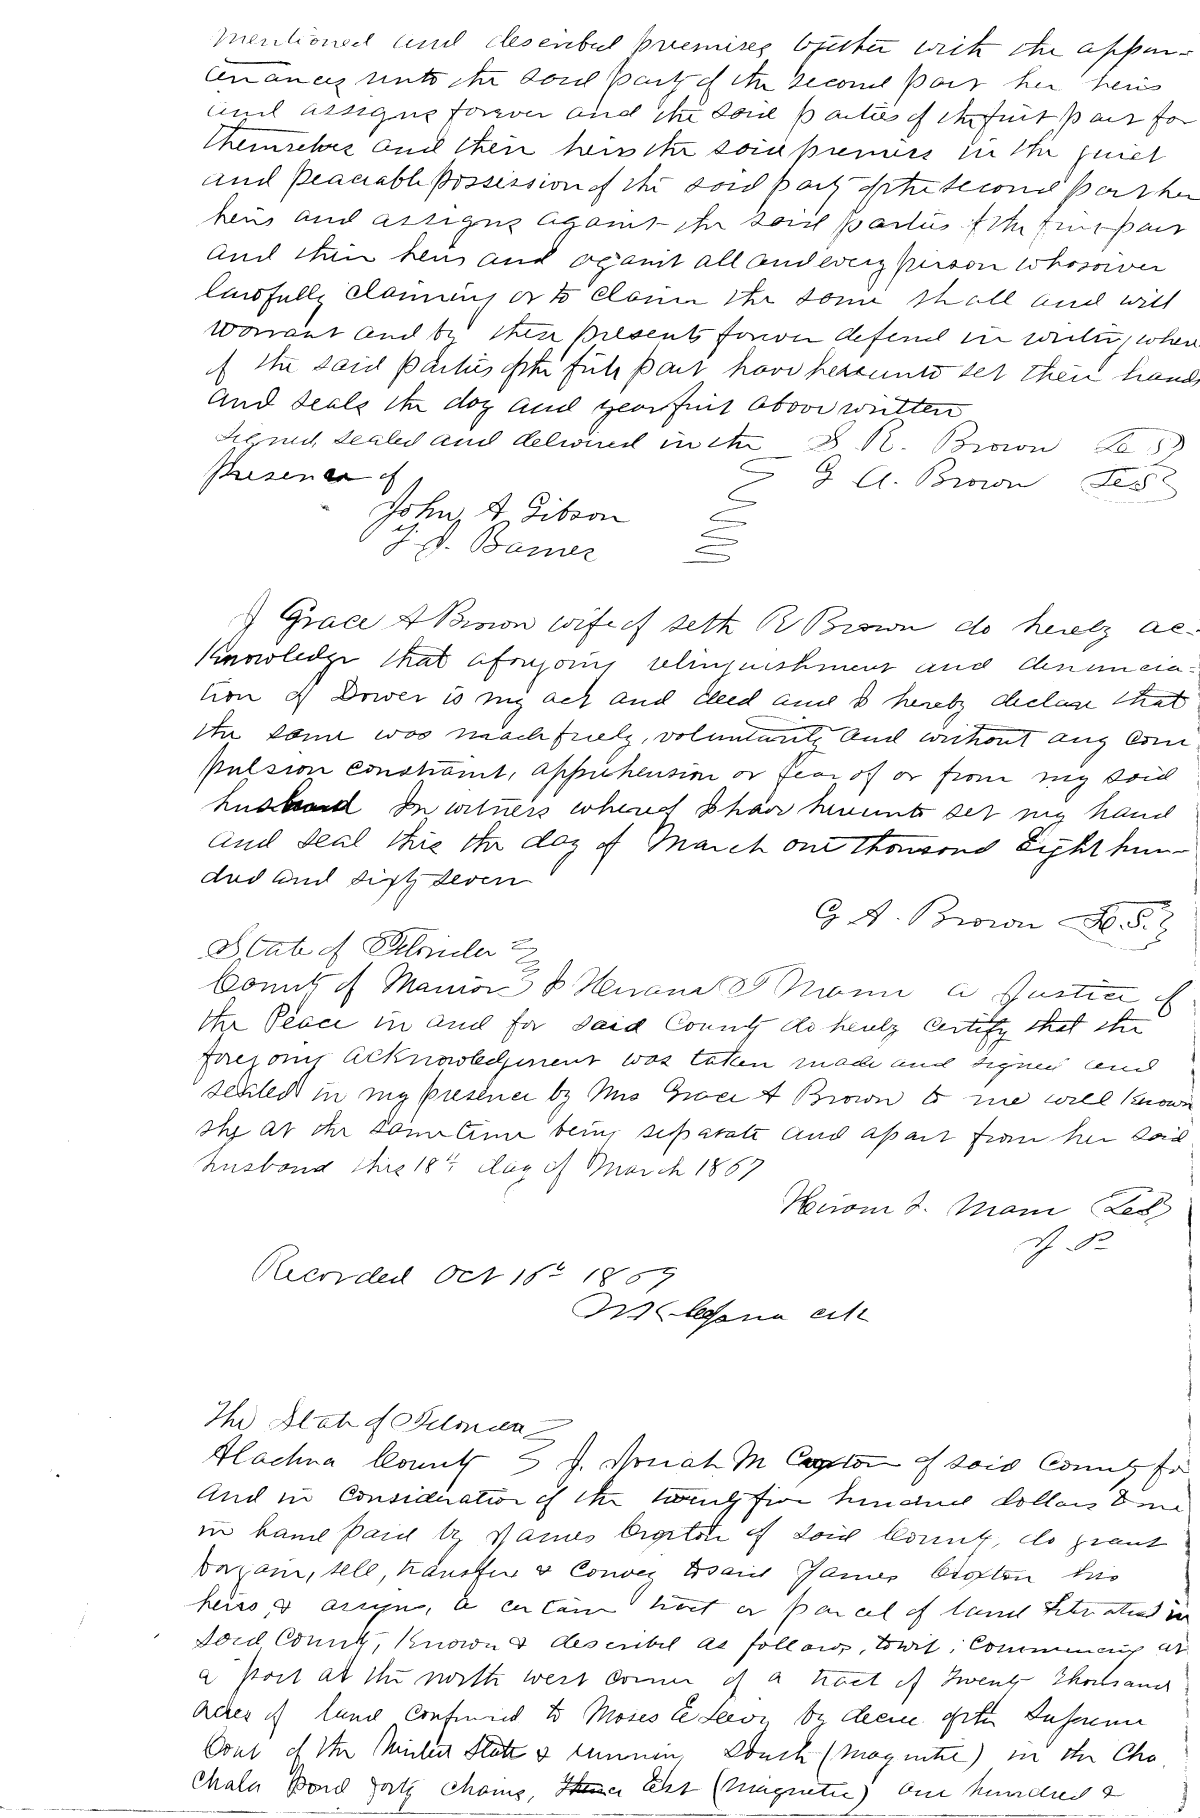 mentioned and described premises together with the appur-
tenances unto the said party of the second part her heirs
and assigns forever and the said parties of the first part for
themselves and their heirs the said premises in the quiet
and peaceable possession of the said party of the second part her
heirs and assigns against the said parties of the first part
and their heirs and against all and every person whosoever
lawfully claiming or to claim the same shall and will
warrant and by these presents forever defend in writing where
of the said parties of the first part have hereunto set their hands
and seals the day and year first above written
Signed, sealed and delivered in the S R. Brown
presence of G A. Brown
John A Gibson
J. Barnes
I Grace A Brown wife of Seth R Brown do hereby ac-
knowledge that aforegoing relinquishment and denuncia-
tion of Dower is my act and deed and I hereby declare that
the same was made freely, voluntarily and without any com
pulsion constraint, apprehension or fear of or from my said
husband In witness whereof I have hereunto set my hand
and seal this the day of March one thousand Eight hun-
dred and sixty seven
G A. Brown L.S.
State of Florida
County of Marion I Hiram Mann a Justice of
the Peace in and for said County do hereby certify that the
foregoing acknowledgement was taken made and signed and
sealed in my presence by Mrs Grace A Brown to me well known
she at the same time being separate and apart from her said
husband this 18th day of March 1867
Hiram Mann
J. P.
Recorded Oct 16th 1869
clk
The State of Florida
Alachua County I, Josiah M Croxton of said County for
and in consideration of the twenty five hundred dollars to me
in hand paid by James Croxton of said County, do grant
bargain, sell, transfer & convey to said James Croxton his
heirs, & assigns, a certain tract or parcel of land situated in
said County, known & described as follows, towit; Commencing at
a post at the north west corner of a tract of Twenty Thousand
acres of land confirmed to Moses E Levy by decree of the Supreme
Court of the United States & running South (magnetic) in the Cha
Chala Pond forty chains, Thence East (magnetic) one hundred &